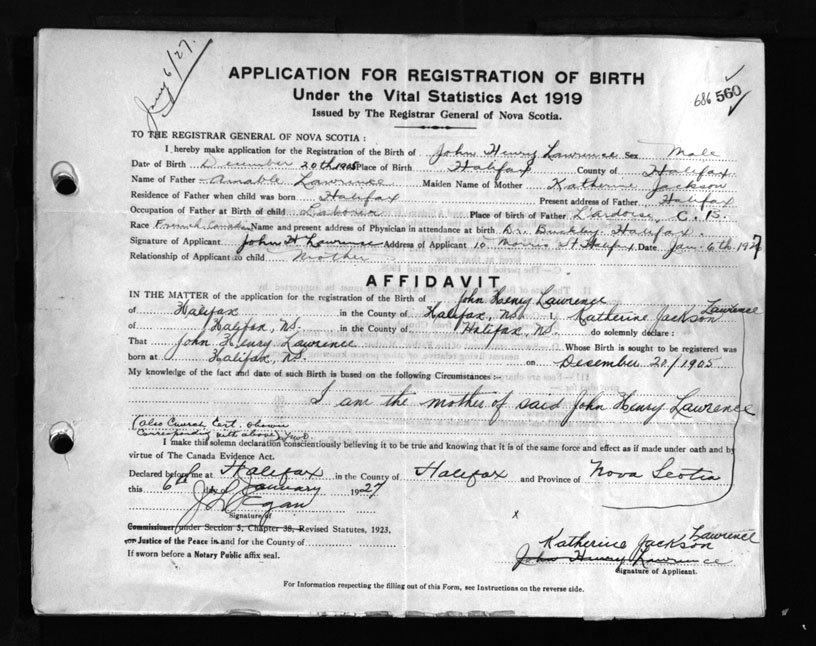 Jany 6/27.
APPLICATION FOR REGISTRATION OF BIRTH
Under the Vital Statistics Act 1919
686 560
Issued by The Registrar General of Nova Scotia.
TO THE REGISTRAR GENERAL OF NOVA SCOTIA :
I hereby make application for the Registration of the Birth of John Henry Lawrence Sex Male
Date of Birth December 20th 1905 Place of Birth Halifax County of Halifax
Name of Father Amable Lawrence Maiden Name of Mother Katherine Jackson
Residence of Father when child was born Halifax Present address of Father Halifax
Occupation of Father at Birth of child Laborer Place of birth of Father L'ardoise, C. B.
Race French Name and present address of Physician in attendance at birth Dr. Buckley Halifax.
Signature of Applicant John H Lawrence Address of Applicant 10 Morris St Halifax Date Jan. 6th 1927
Relationship of Applicant to child Mother
AFFIDAVIT
IN THE MATTER of the application for the registration of the Birth of John Henry Lawrence
of Halifax in the County of Halifax, NS. I, Katherine Jackson Lawrence
of Halifax, NS. in the County of Halifax, NS. do solemnly declare :
That John Henry Lawrence Whose Birth is sought to be registered was
born at Halifax, NS. on Desember 20/1905
My knowledge of the fact and date of such Birth is based on the following Circumstances :-
I am the mother of said John Henry Lawrence
(also Church Cert. shown
corresponding with above)
I make this solemn declaration conscientiously believing it to be true and knowing that it is of the same force and effect as if made under oath and by
virtue of The Canada Evidence Act.
Declared before me at Halifax in the County of Halifax and Province of Nova Scotia
this 6th day of January 1927
J. L. Egan
Signature of
Commissioner under Section 3, Chapter 38, Revised Statutes, 1923,
or Justice of the Peace in and for the County of
If sworn before a Notary Public affix seal.
x
Katherine Jackson Lawrence
John Henry Lawrence
Signature of Applicant.
For Information respecting the filling out of this Form, see Instructions on the reverse side.